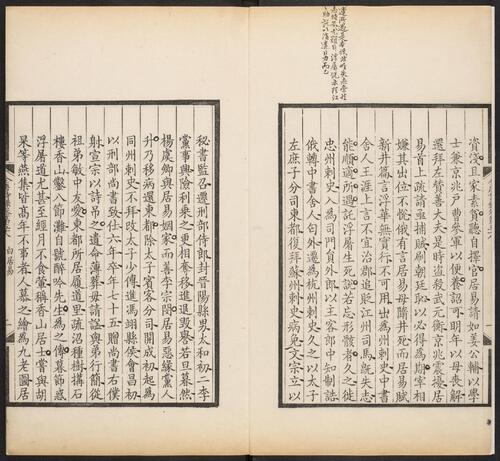 資淺且家素貧聽自擇官居易請如姜公輔以學
士兼京兆戶曹參軍以便養詔可明年以母喪解
還拜左贊善大夫是時盜殺武元衡京兆震擾居
易首上疏請亟捕賊刷朝廷恥以必得為期宰相
嫌其出位不悅俄有言居易母墮井死而居易賦
新井篇言浮華無實行不可用出為州刺史中書
舍人王涯上言不宜治郡追貶江州司馬既失志
能順適所遇託浮屠生死說若忘形骸者久之徙
忠州刺史入為司門員外郎以主客郎中知制誥
俄轉中書舍人匄外遷為杭州刺史久之以太子
左庶子分司東都復拜蘇州刺史病免文宗立以
白居易
秘書監召遷刑部侍郎封晉陽縣男太和初二李
黨事興險利乘之更相奪移進退毀譽若旦暮然
楊虞卿與居易姻家而善李宗閔居易惡緣黨人
升乃移病還東都除太子賓客分司開成初起為
同州刺史不拜改太子少傅進馮翊縣侯會昌初
以刑部尚書致仕六年卒年七十五贈尚書右僕
射宣宗以詩弔之遺命薄葬毋請諡與弟行簡從
祖弟敏中友愛東都所居履道里疏沼種樹搆石
樓香山鑿八節灘自號醉吟先生為之傳暮節惑
浮屠道尤甚至經月不食葷稱香山居士嘗與胡
杲等燕集皆高年不事者人慕之繪為九老圖居